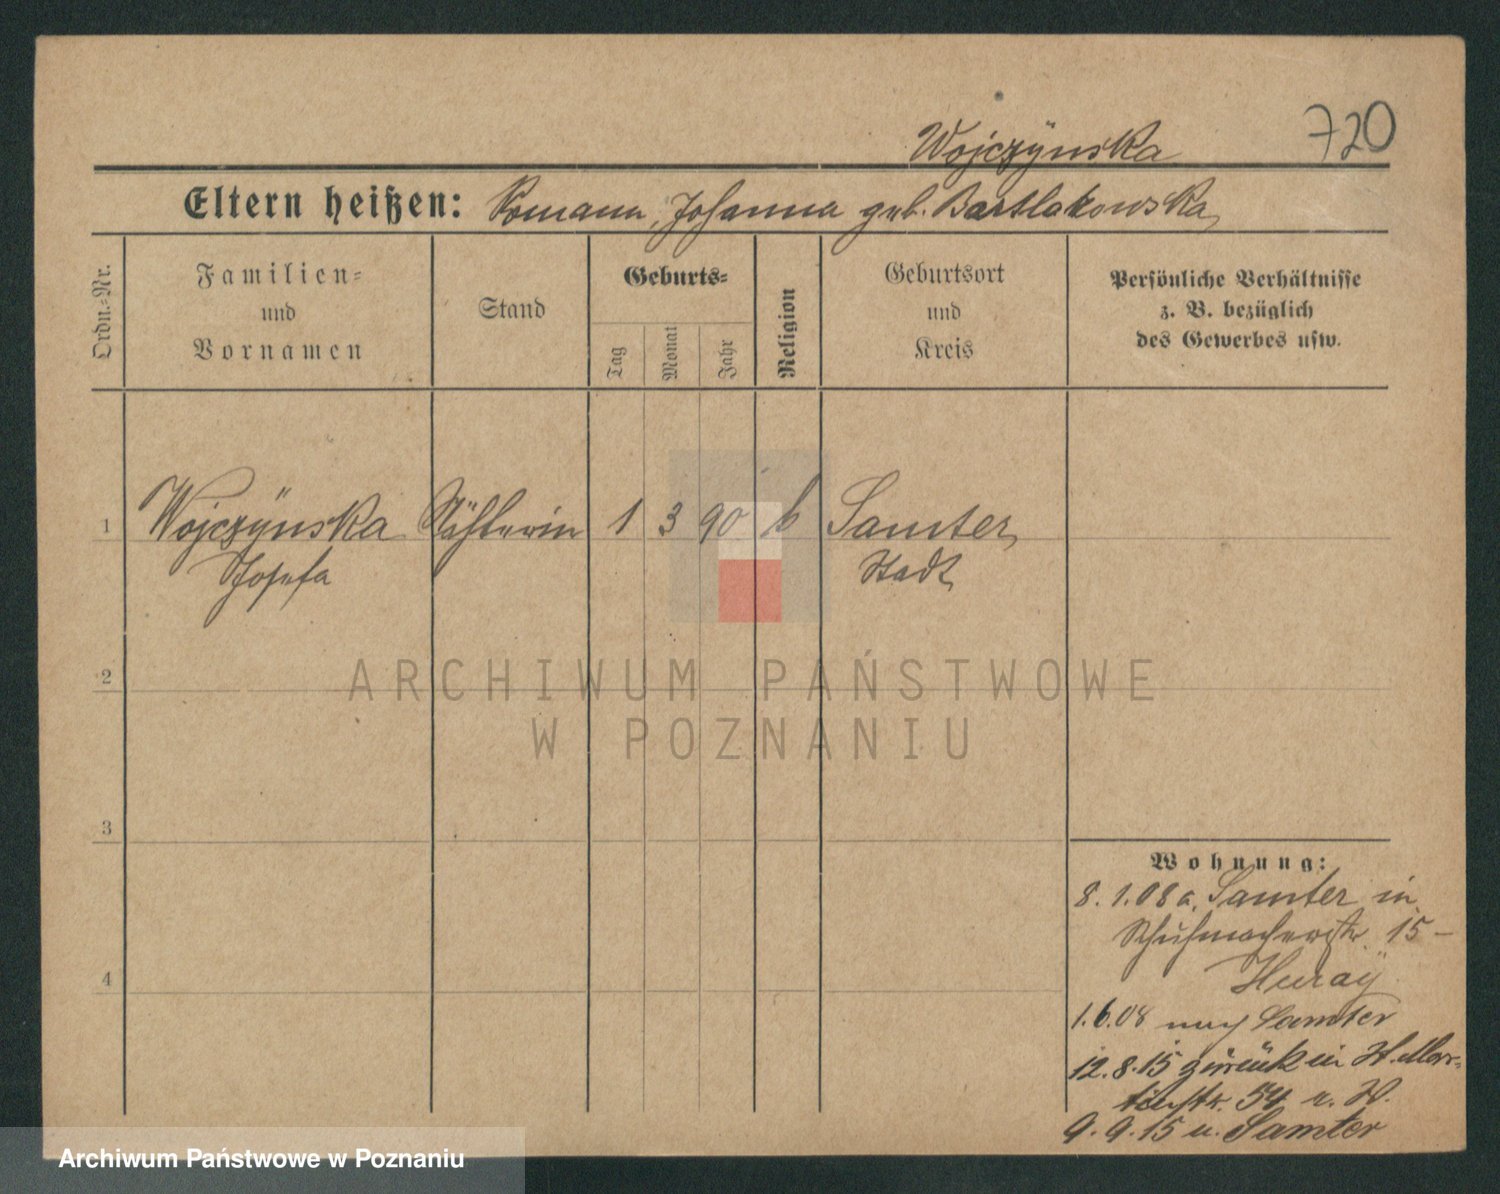 Wojczÿnska 720
Eltern heißen: Romann, Johanna geb. Bartlakowska
Ordn.-Nr.
Familien-
und
Vornamen
Stand
Geburts-
Tag
Monat
Jahr
Religion
Geburtsort
und
Kreis
Persönliche Verhältnisse
z. B. bezüglich
des Gewerbes usw.
1 Wojczÿnska Nähterin 1 3 90 k Samter
Josefa Stadt
2
ARCHIWUM PAŃSTWOWE
W POZNANIU
3
Wohnung:
8. 1. 08 a. Samter in
Schuhmacherstr. 15 -
Huraÿ
4
1. 6. 08 nach Samter
12. 8. 15 zurück in St. Mar-
tinstr. 54
9. 9. 15 n. Samter
Archiwum Państwowe w Poznaniu